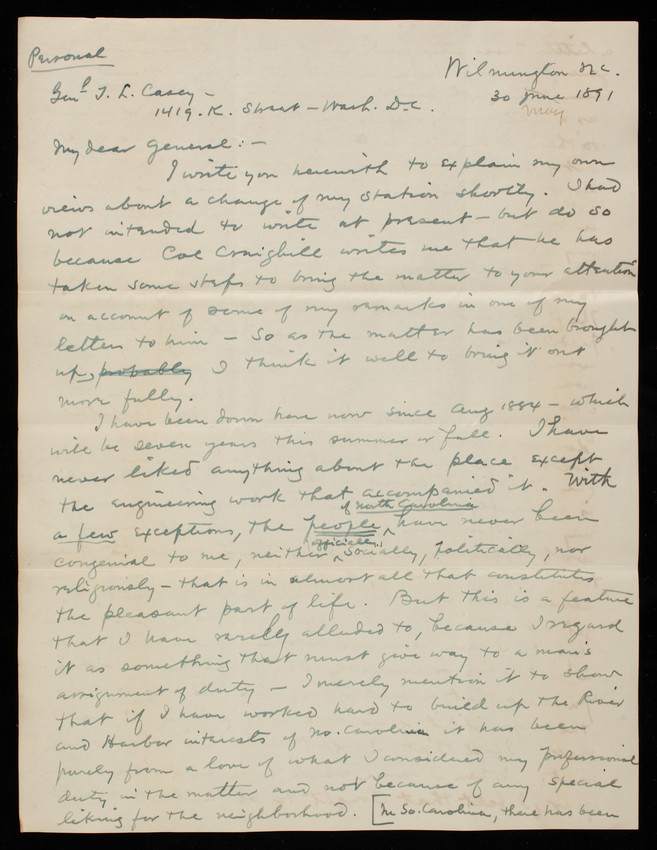 Personal
Wilmington N.C.
30 June 1891
may
Genl T. L. Casey –
1419. K. Street – Wash. D.C.
My dear General: –
I write you herewith to explain my own
views about a change of my station shortly. I had
not intended to write at present – but do so
because Col Craighill writes me that he has
taken some steps to bring the matter to your attention
on account of some of my remarks in one of my
letters to him – So as the matter has been brought
up, probably I think it well to bring it out
more fully.
I have been down here now since Aug 1884 – which
will be seven years this summer or fall. I have
never liked anything about the place except
the engineering work that accompanied it. With
of North Carolina
a few exceptions, the people have never been
officially,
congenial to me, neither socially, politically, nor
religiously – that is in almost all that constitutes
the pleasant part of life. But this is a feature
that I have rarely alluded to, because I regard
it as something that must give way to a man's
assignment of duty – I merely mention it to show
that if I have worked hard to build up the River
and Harbor interests of No. Carolina it has been
purely from a love of what I considered my professional
duty in the matter and not because of any special
liking for the neighborhood. [In So. Carolina, there has been